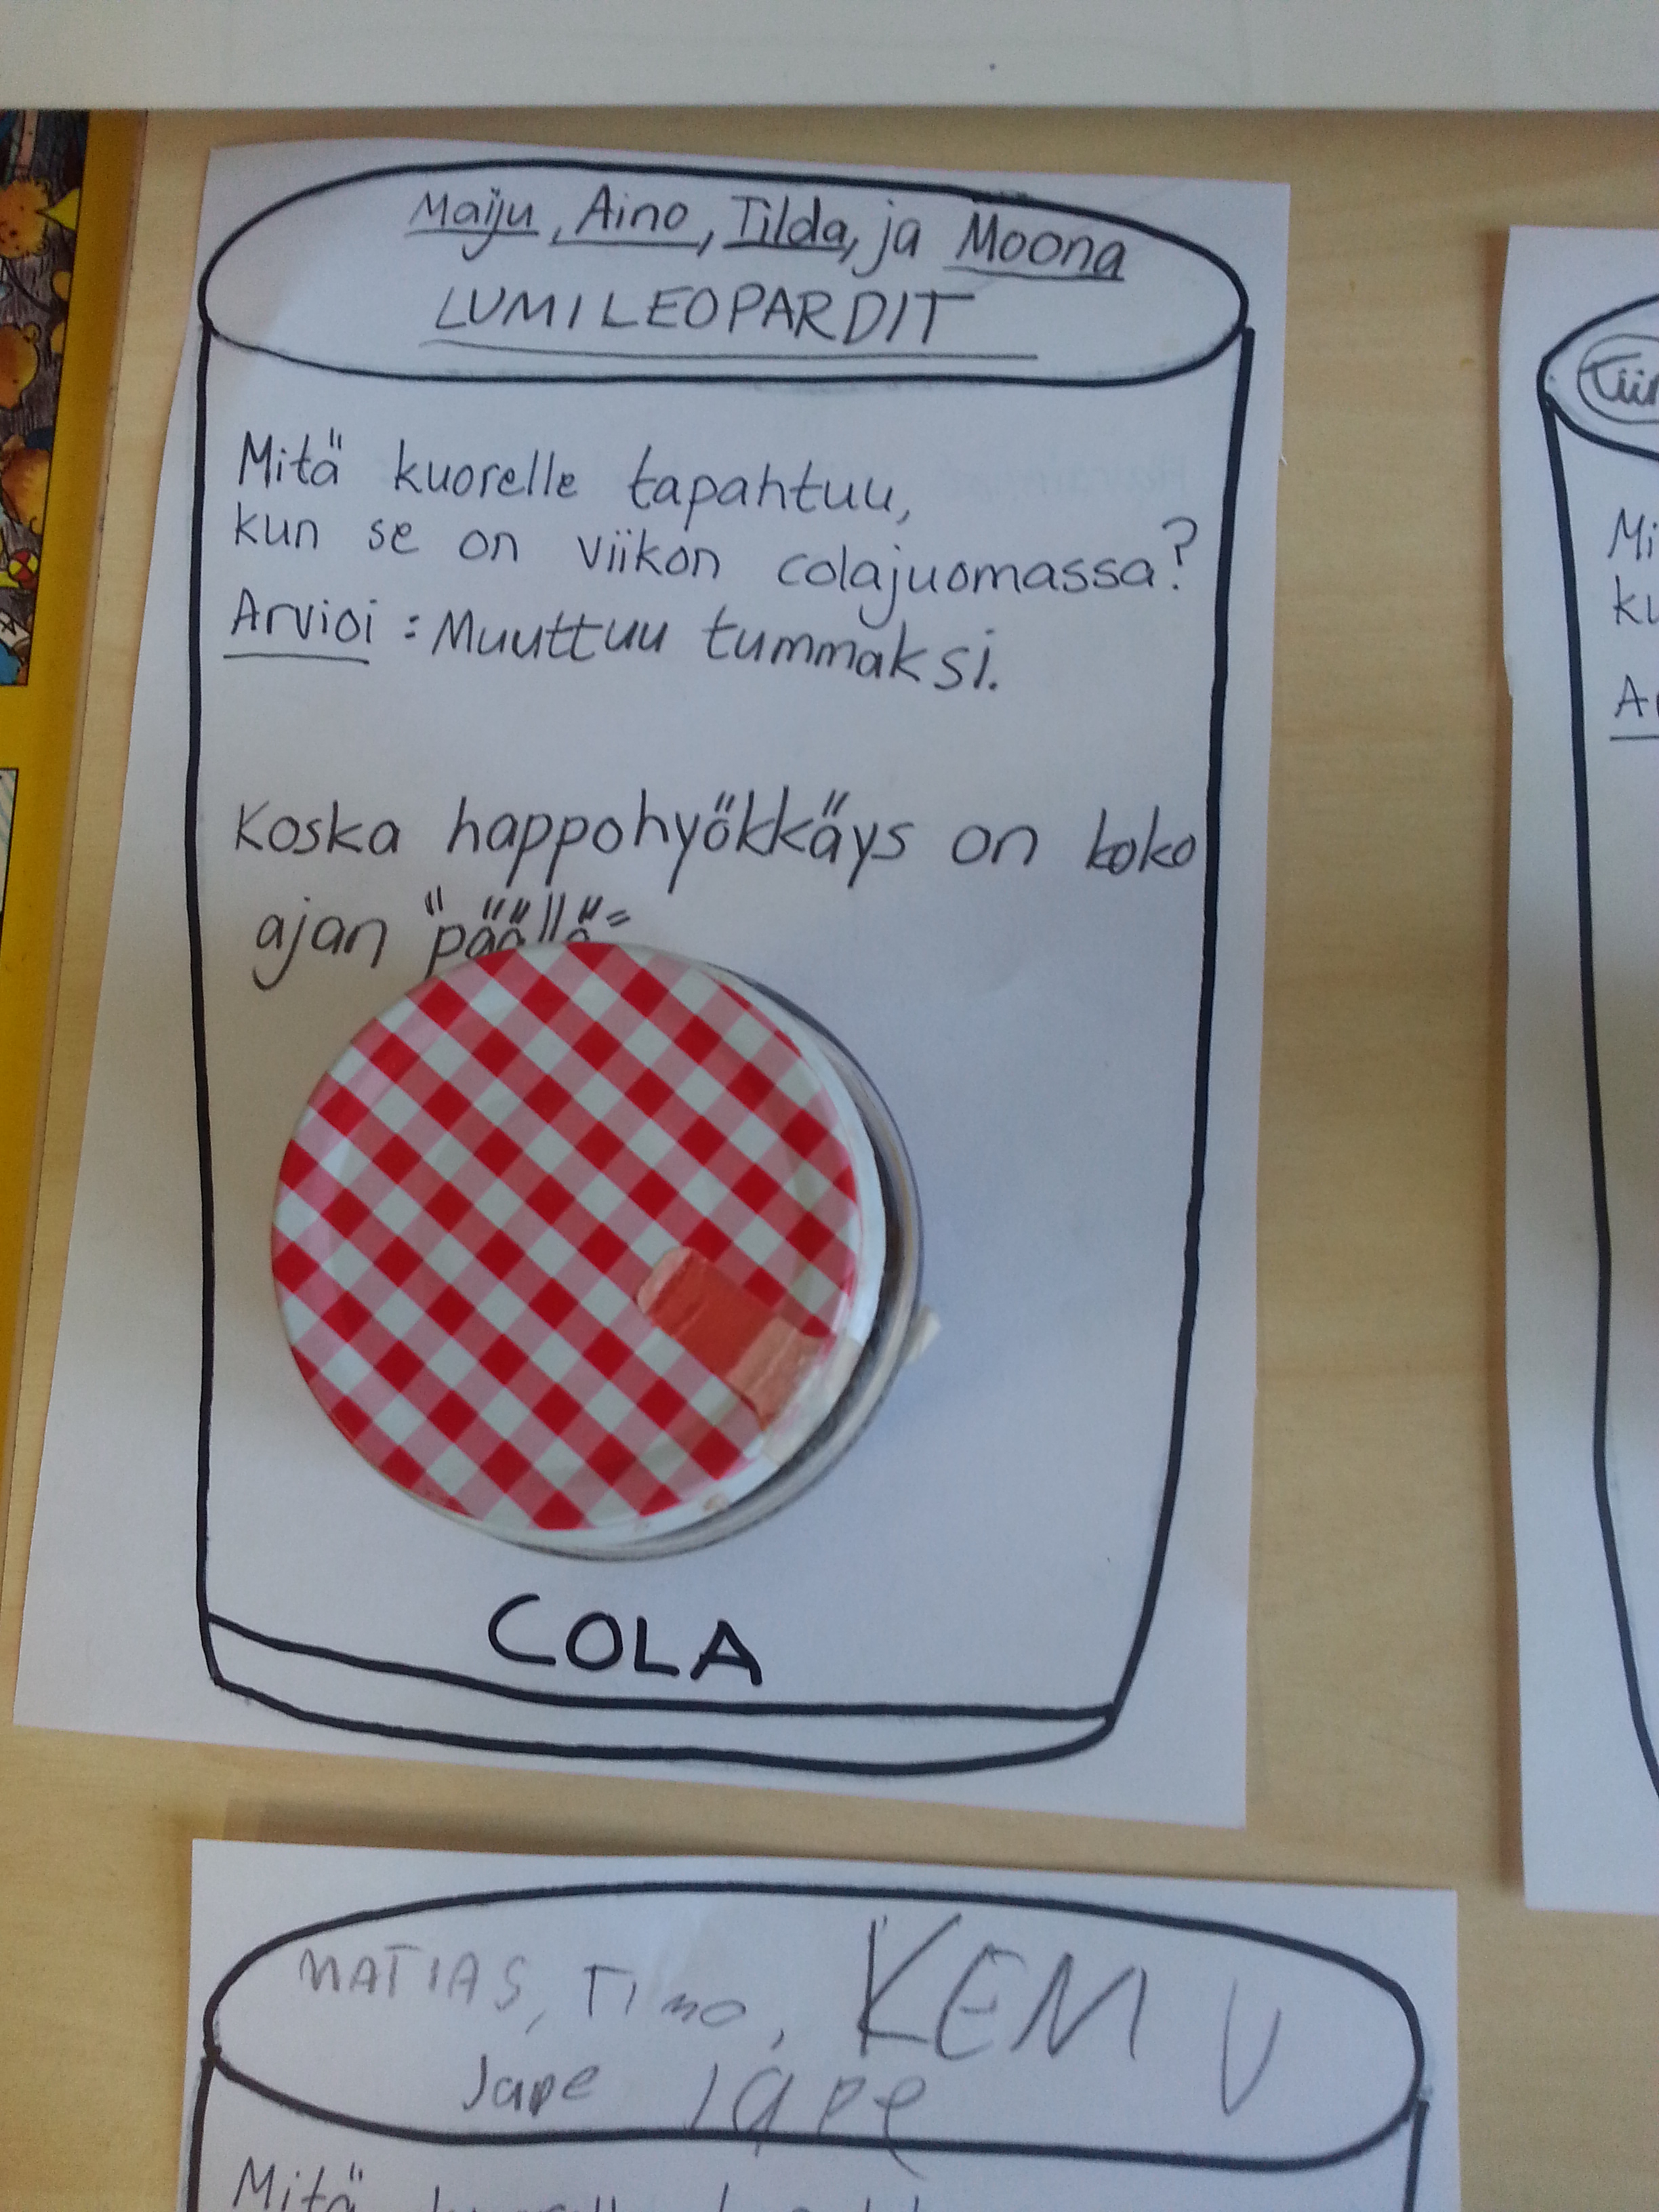 Maiju, Aino, Tilda, ja Moona
LUMILEOPARDIT
Mitä kuorelle tapahtuu,
kun se on viikon colajuomassa?
Arvioi : Muuttuu tummaksi.
Koska happohyökkäys on koko
ajan "päällä"
COLA
MATIAS, TIMO, KEMU
Jape Jape
Mitä
Mi
ku